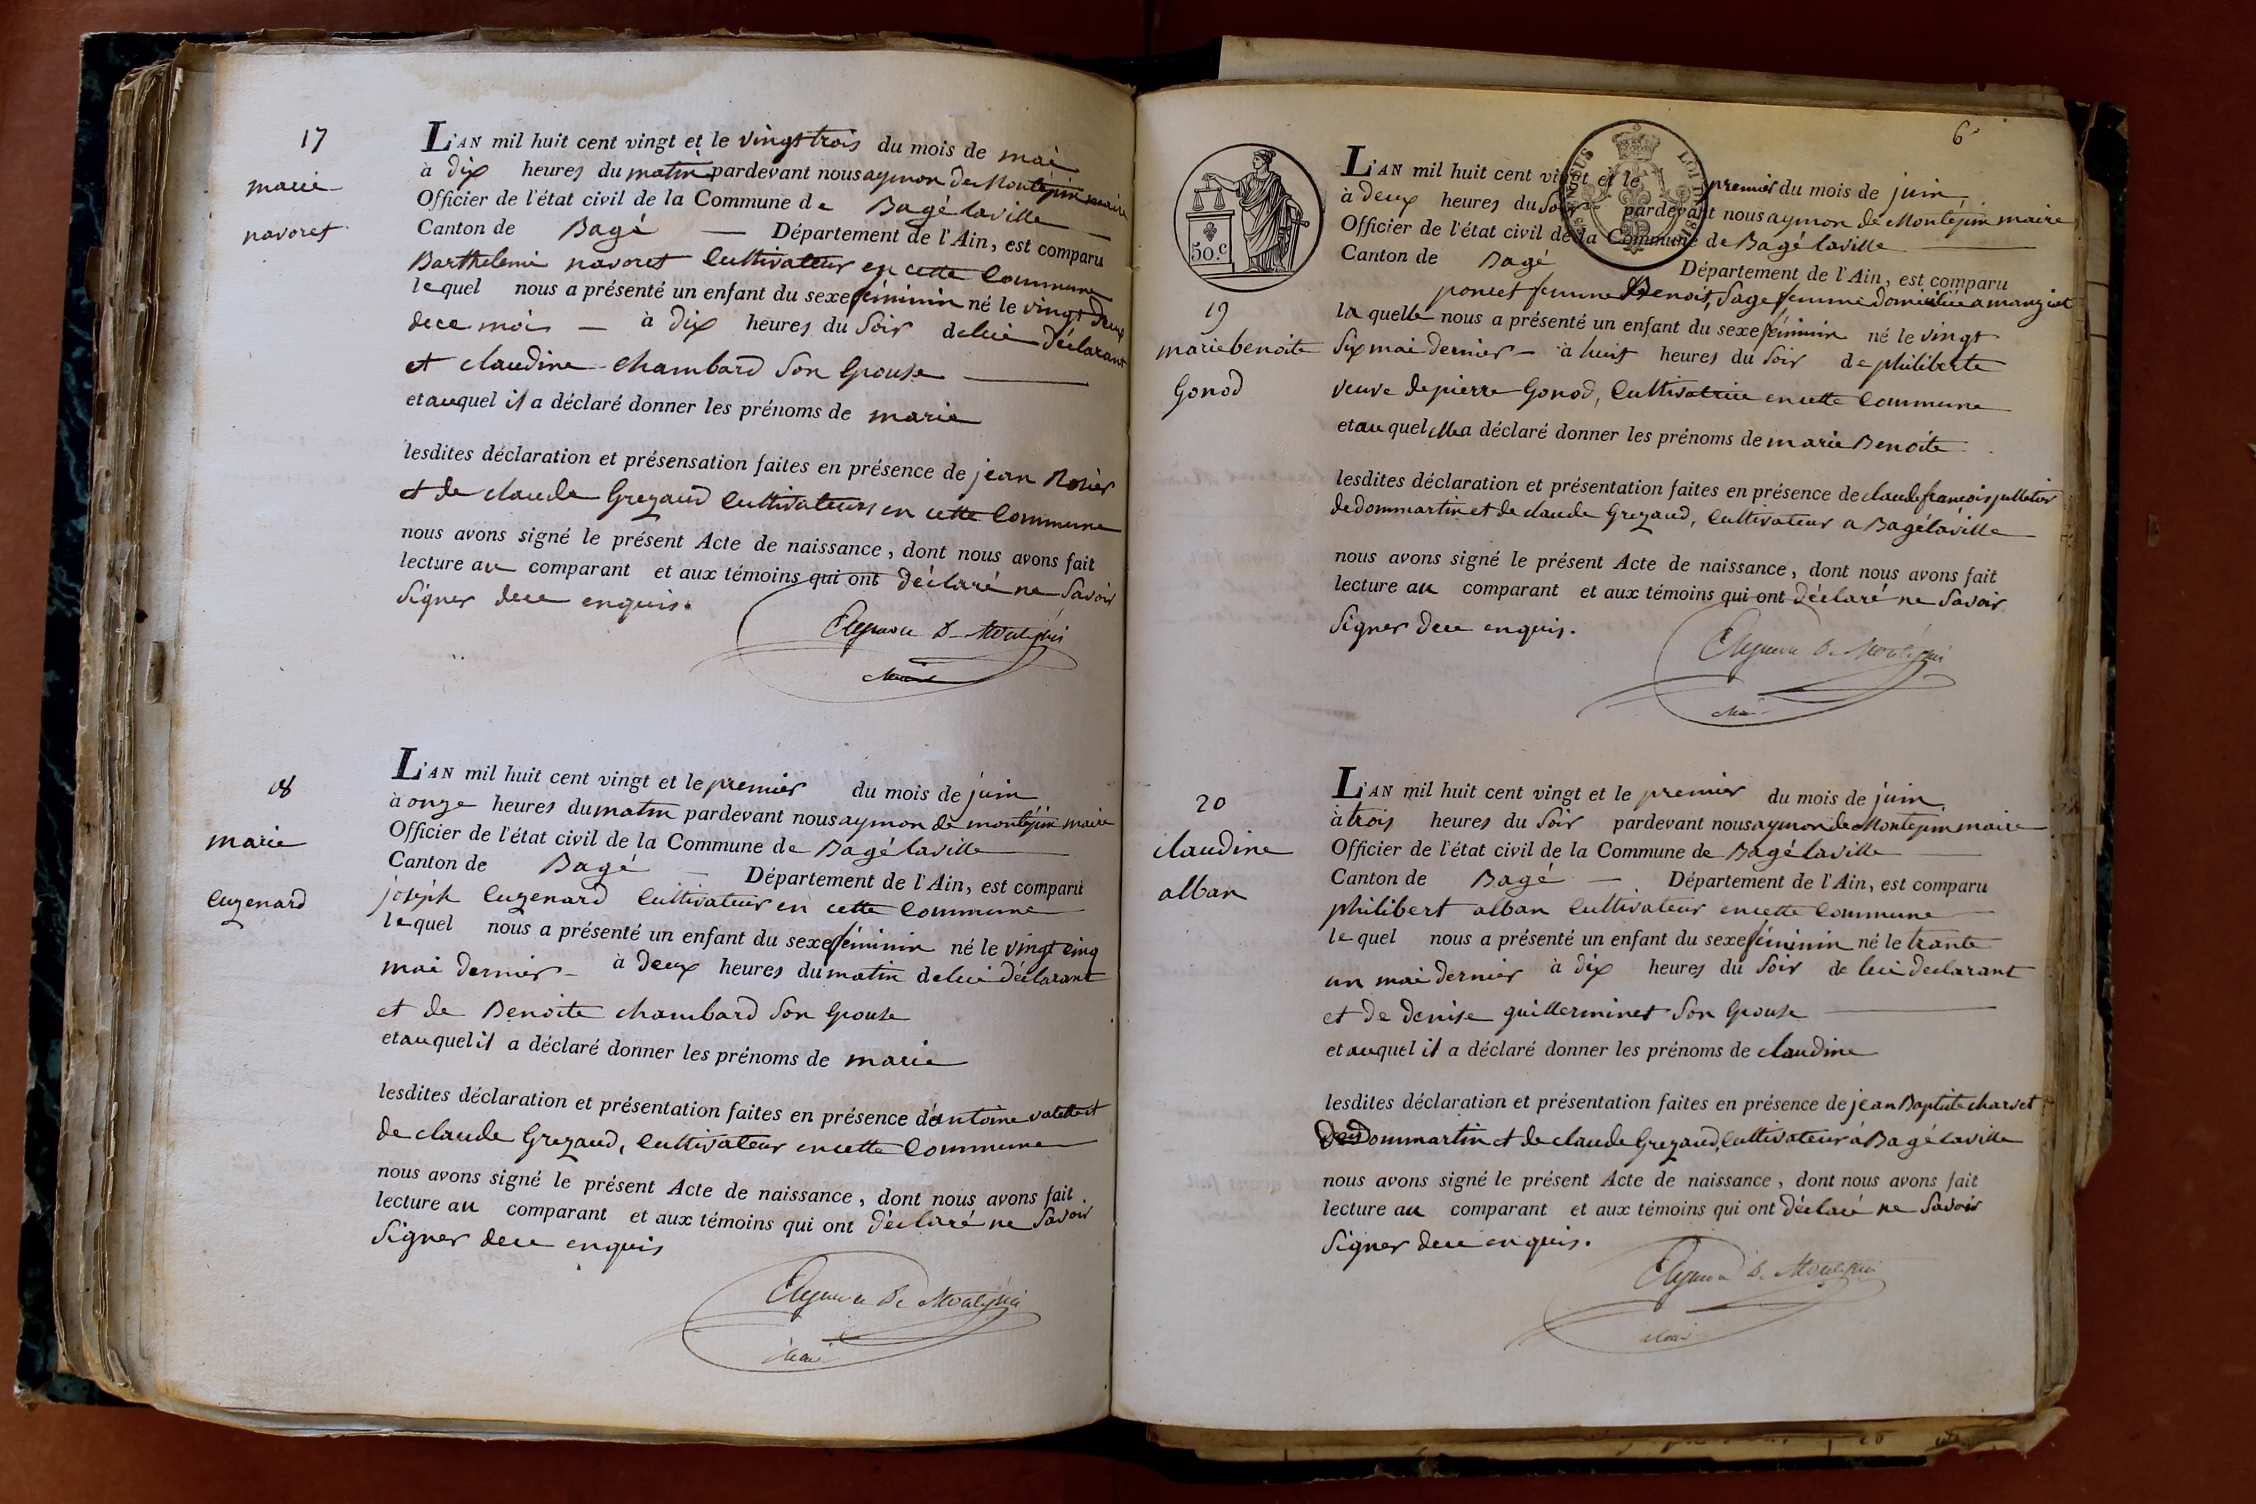 17
marie
navoret
L'AN mil huit cent vingt et le vingt trois du mois de mai
à dix heures du matin pardevant nous aymon de Montépin maire
Officier de l'état civil de la Commune de Bagé laville
Canton de Bagé — Département de l'Ain, est comparu
Barthelemi navoret Cultivateur en cette Commune
lequel nous a présenté un enfant du sexe féminin né le vingt deux
de ce mois — à dix heures du Soir de lui déclarant
et claudine chambard Son Epouse
et auquel il a déclaré donner les prénoms de marie
lesdites déclaration et présensation faites en présence de jean Rosier
et de claude Grezaud Cultivateurs en cette Commune
nous avons signé le présent Acte de naissance, dont nous avons fait
lecture au comparant et aux témoins qui ont déclaré ne Savoir
Signer de ce enquis.
Aymon De Montépin
Maire
18
marie
Cuzenard
L'AN mil huit cent vingt et le premier du mois de juin
à onze heures du matin pardevant nous aymon de montépin maire
Officier de l'état civil de la Commune de Bagé laville
Canton de Bagé — Département de l'Ain, est comparu
joseph Cuzenard Cultivateur en cette Commune
lequel nous a présenté un enfant du sexe féminin né le vingt cinq
mai dernier — à deux heures du matin de lui déclarant
et de Benoite chambard Son Epouse
et auquel il a déclaré donner les prénoms de marie
lesdites déclaration et présentation faites en présence d'antoine et
de claude Grezaud, Cultivateur en cette Commune
nous avons signé le présent Acte de naissance, dont nous avons fait
lecture au comparant et aux témoins qui ont déclaré ne Savoir
Signer de ce enquis
Aymon De Montépin
Maire
6
50.c
19
marie benoite
Gonod
L'AN mil huit cent vingt et le premier du mois de juin
à deux heures du Soir pardevant nous aymon de Montépin maire
Officier de l'état civil de la Commune de Bagé laville
Canton de Bagé Département de l'Ain, est comparu
poncet femme Benoit, Sage femme domiciliée a manziat
la quelle nous a présenté un enfant du sexe féminin né le vingt
Six mai dernier — à huit heures du Soir de philiberte
veuve de pierre Gonod, Cultivatrice en cette Commune
et au quel elle a déclaré donner les prénoms de marie Benoite
lesdites déclaration et présentation faites en présence de claude françois pelletier
de dommartin et de claude Grezaud, Cultivateur a Bagé laville
nous avons signé le présent Acte de naissance, dont nous avons fait
lecture au comparant et aux témoins qui ont déclaré ne Savoir
Signer de ce enquis.
Aymon De Montépin
20
claudine
alban
L'AN mil huit cent vingt et le premier du mois de juin
à trois heures du Soir pardevant nous aymon de Montepin maire
Officier de l'état civil de la Commune de Bagé laville
Canton de Bagé — Département de l'Ain, est comparu
philibert alban Cultivateur en cette Commune
lequel nous a présenté un enfant du sexe féminin né le trante
un mai dernier à dix heures du Soir de lui declarant
et de denise guillerminet Son Epouse
et auquel il a déclaré donner les prénoms de claudine
lesdites déclaration et présentation faites en présence de jean Baptiste charvet
de dommartin et de claude Grezaud, Cultivateur à Bagé laville
nous avons signé le présent Acte de naissance, dont nous avons fait
lecture au comparant et aux témoins qui ont déclaré ne Savoir
Signer de ce enquis.
Aymon De Montépin